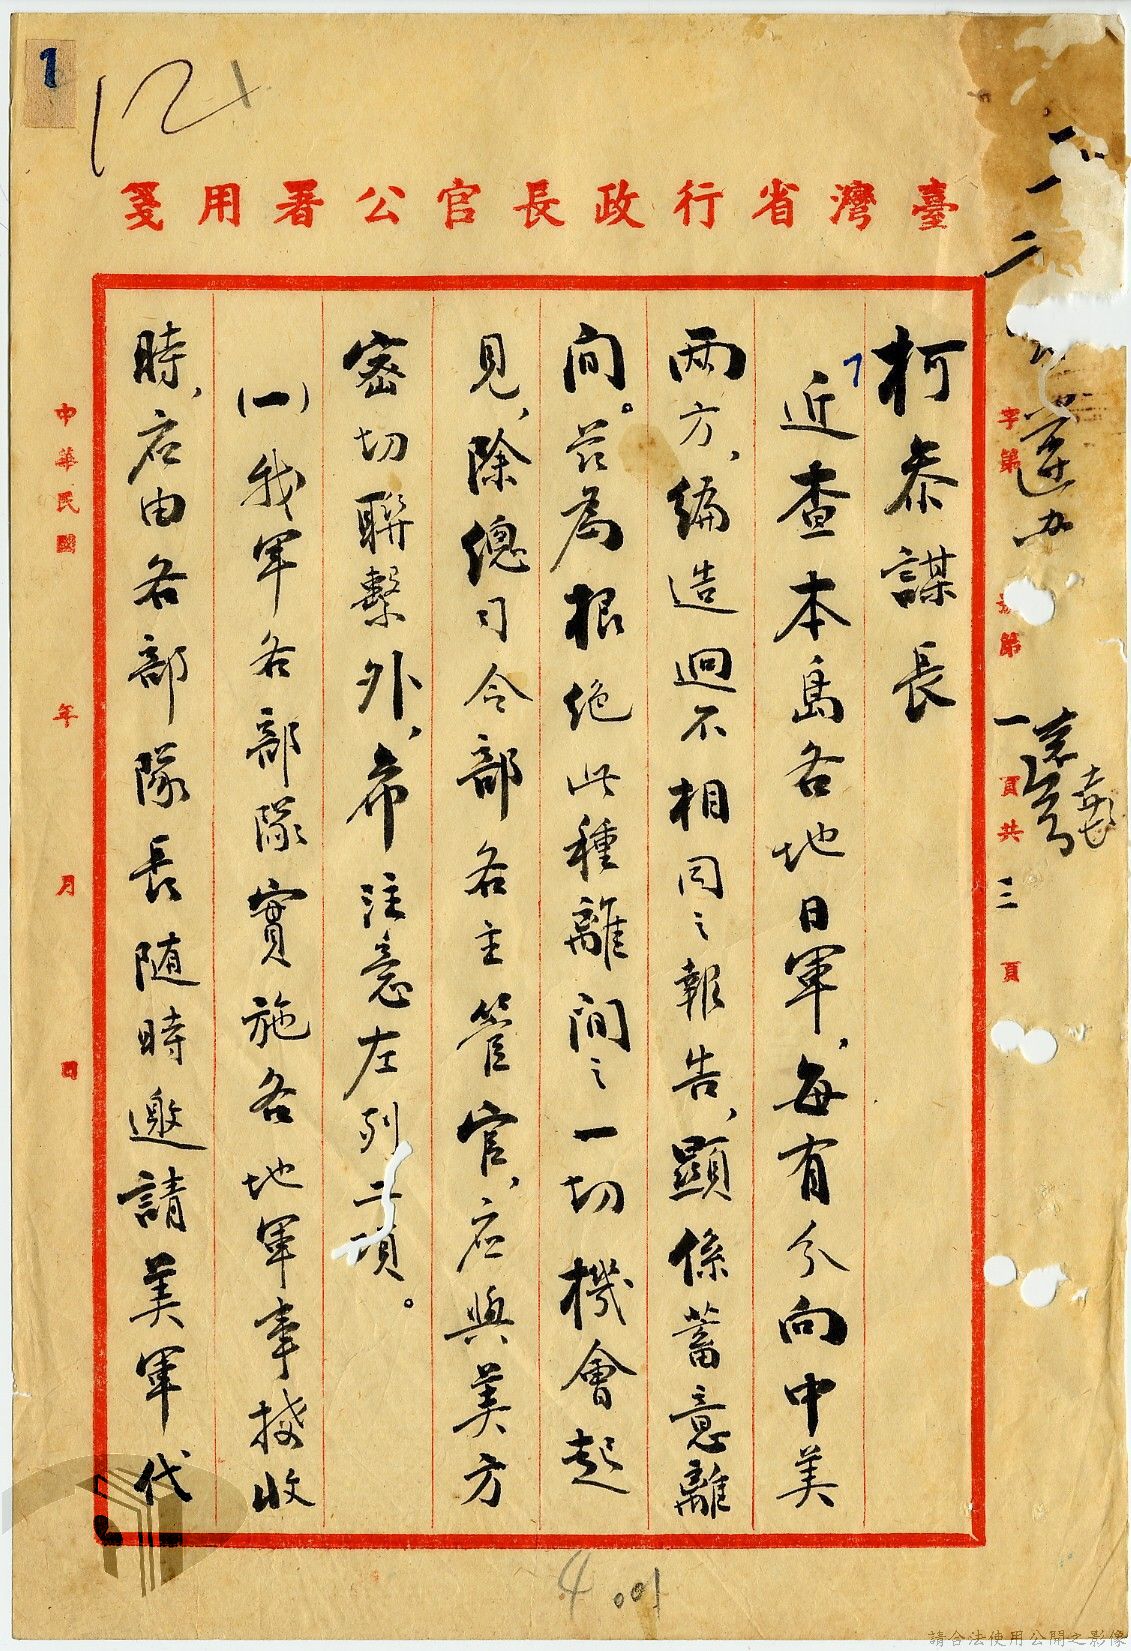 1
12
臺灣省行政長官公署用箋
字第 號第一頁共三頁
遵办
柯參謀長
近查本島各地日軍、每有分向中美
兩方、編造迥不相同之報告、顯係蓄意離
間。茲為根绝此種離間之一切機會起
見、除總司令部各主管官、应與美方
密切聯繫外、希注意左列二項。
(一)我軍各部隊實施各地軍事接收
時、应由各部隊長随時邀請美軍代
中華民國 年 月 日
4
001
請合法使用公開之影像